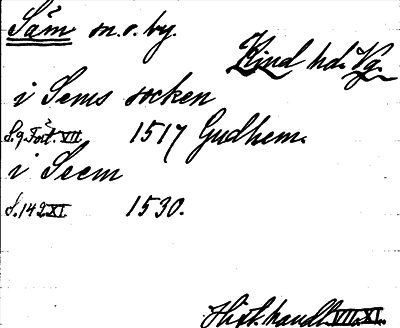 Säm sn. o. by.
Kind hd. Vg.
i Sems socken
S. 9. Fört. VII. 1517 Gudhem.
i Seem
S. 142 XI. 1530.
Hist. handl. VII. XI.